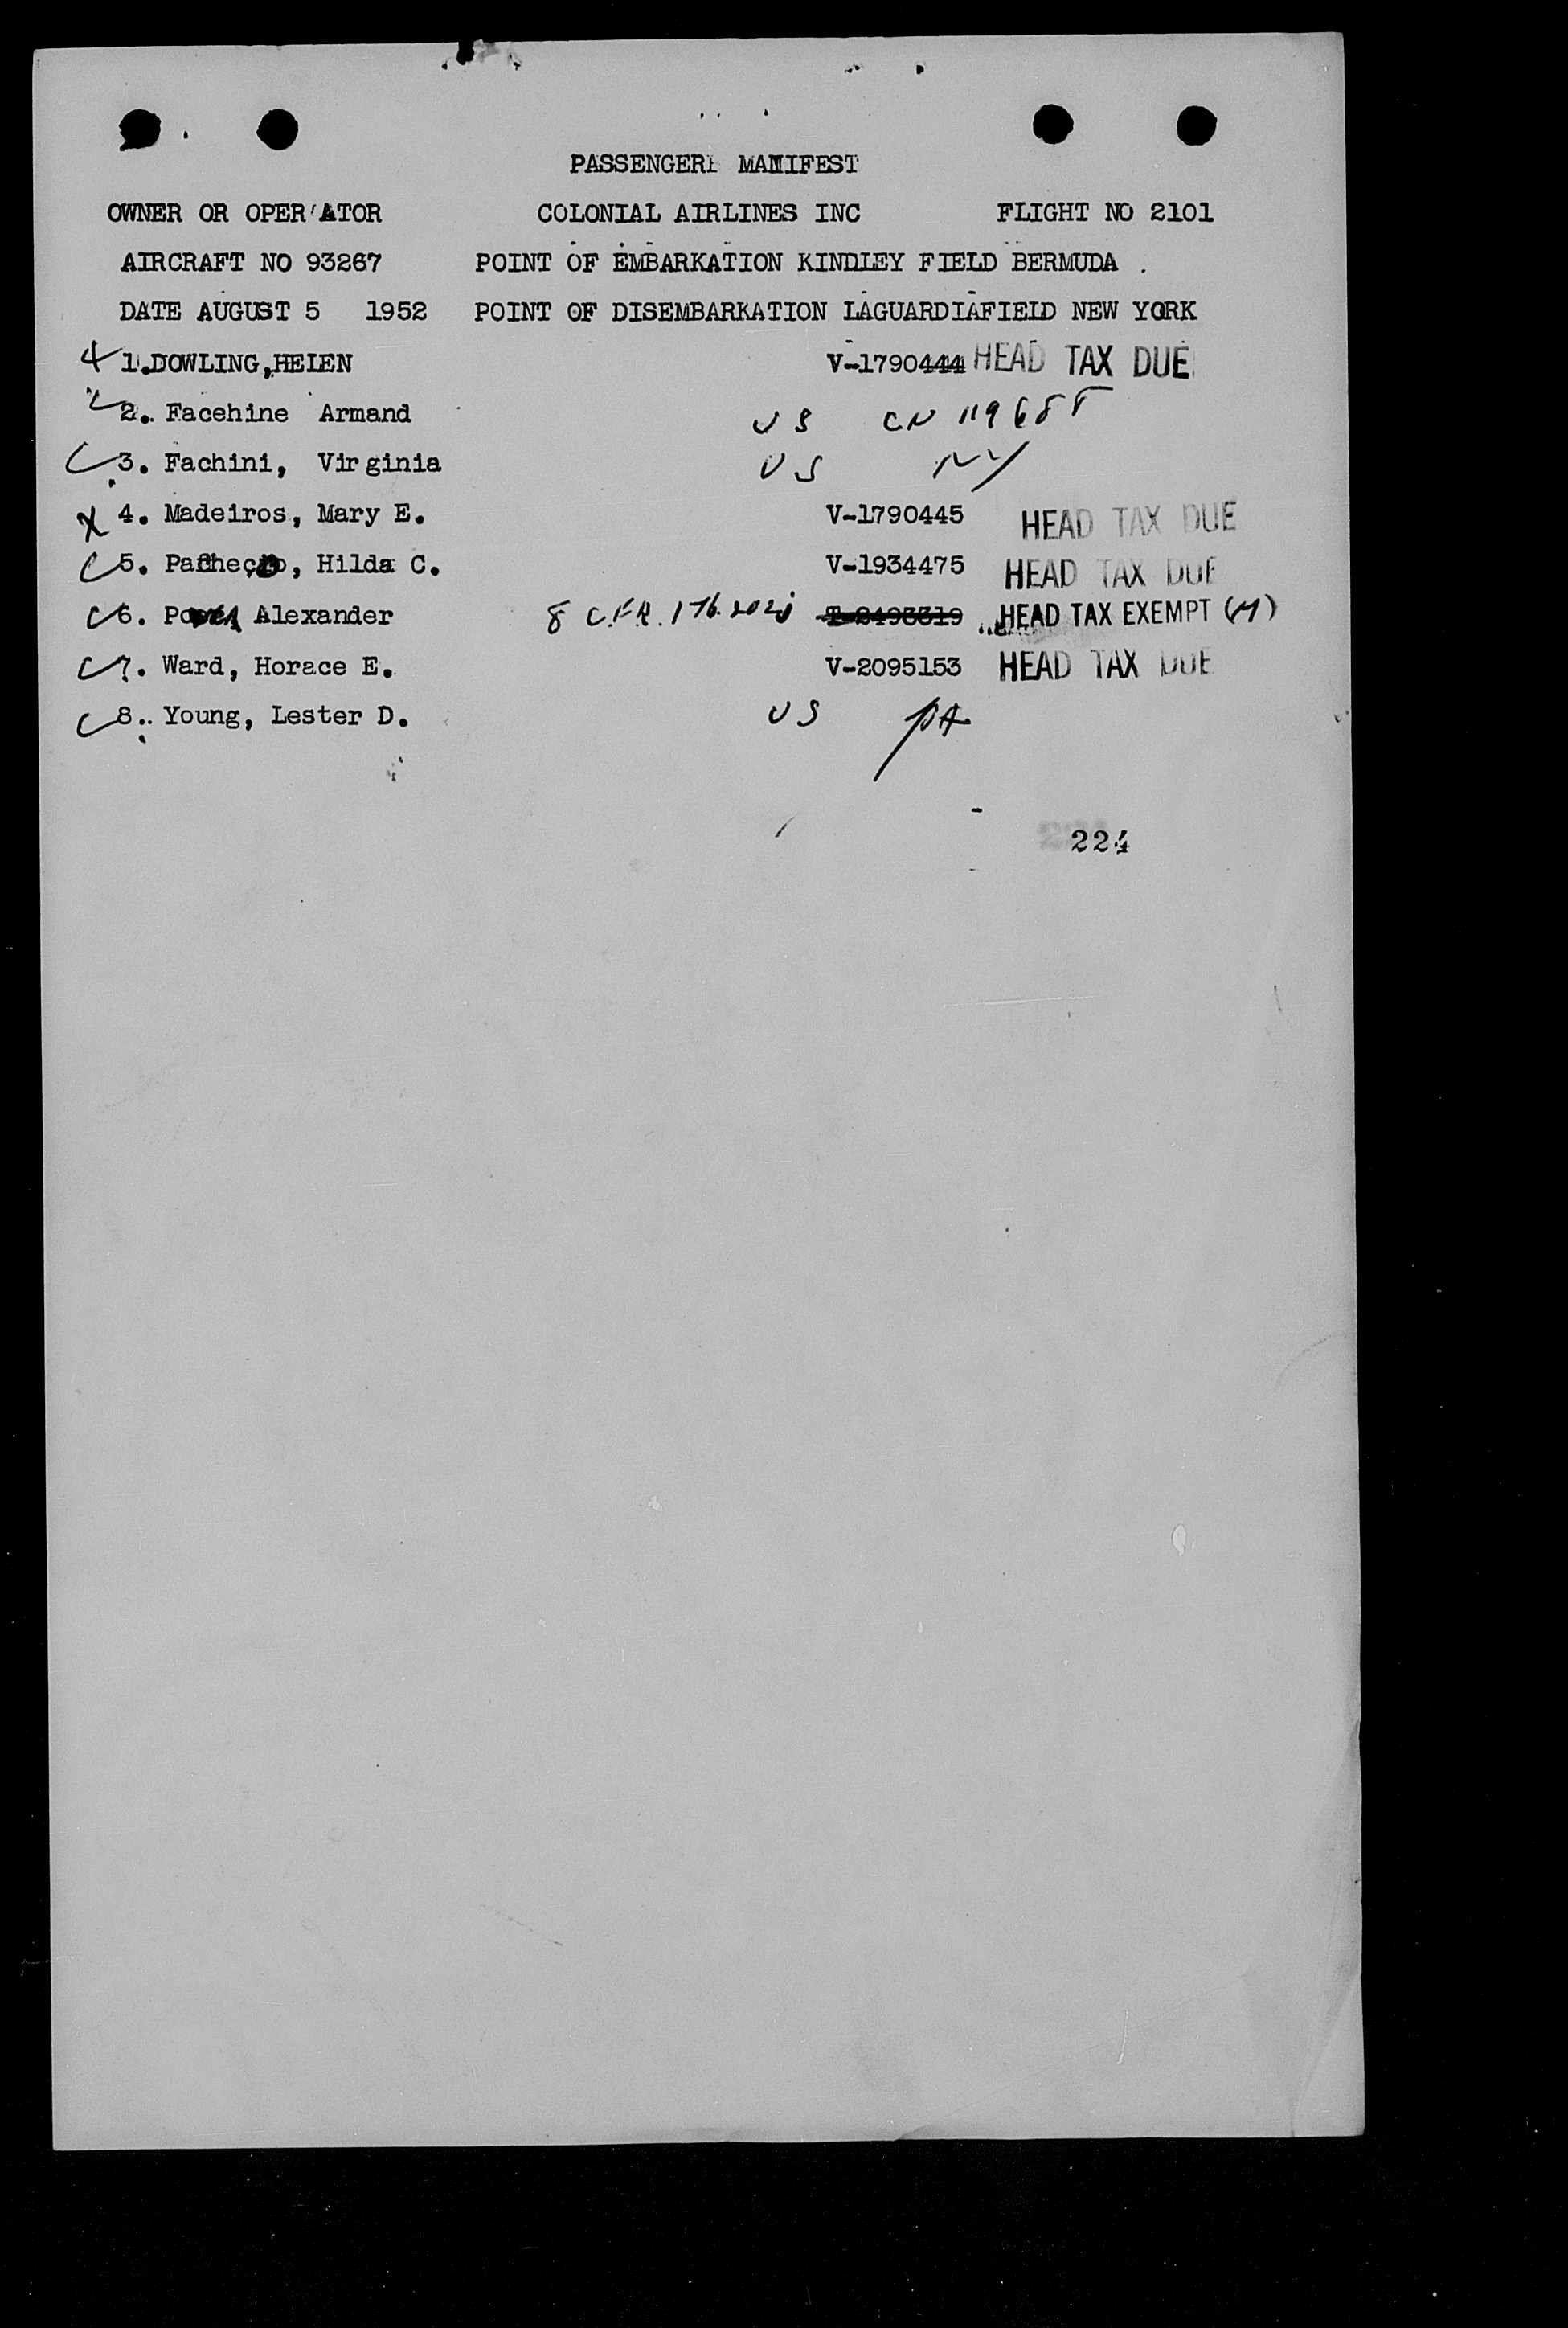 PASSENGER MANIFEST
OWNER OR OPERATOR COLONIAL AIRLINES INC FLIGHT NO 2101
AIRCRAFT NO 93267 POINT OF EMBARKATION KINDLEY FIELD BERMUDA .
DATE AUGUST 5 1952 POINT OF DISEMBARKATION LAGUARDIAFIELD NEW YORK
1.DOWLING,HELEN V-1790444 HEAD TAX DUE
2. Facehine Armand US CN 119688
3. Fachini, Virginia US NY
4. Madeiros, Mary E. V-1790445 HEAD TAX DUE
5. Pacheco, Hilda C. V-1934475 HEAD TAX DUE
6. Alexander 8 CFR. 176.202j HEAD TAX EXEMPT (M)
7. Ward, Horace E. V-2095153 HEAD TAX DUE
8. Young, Lester D. US PA
224